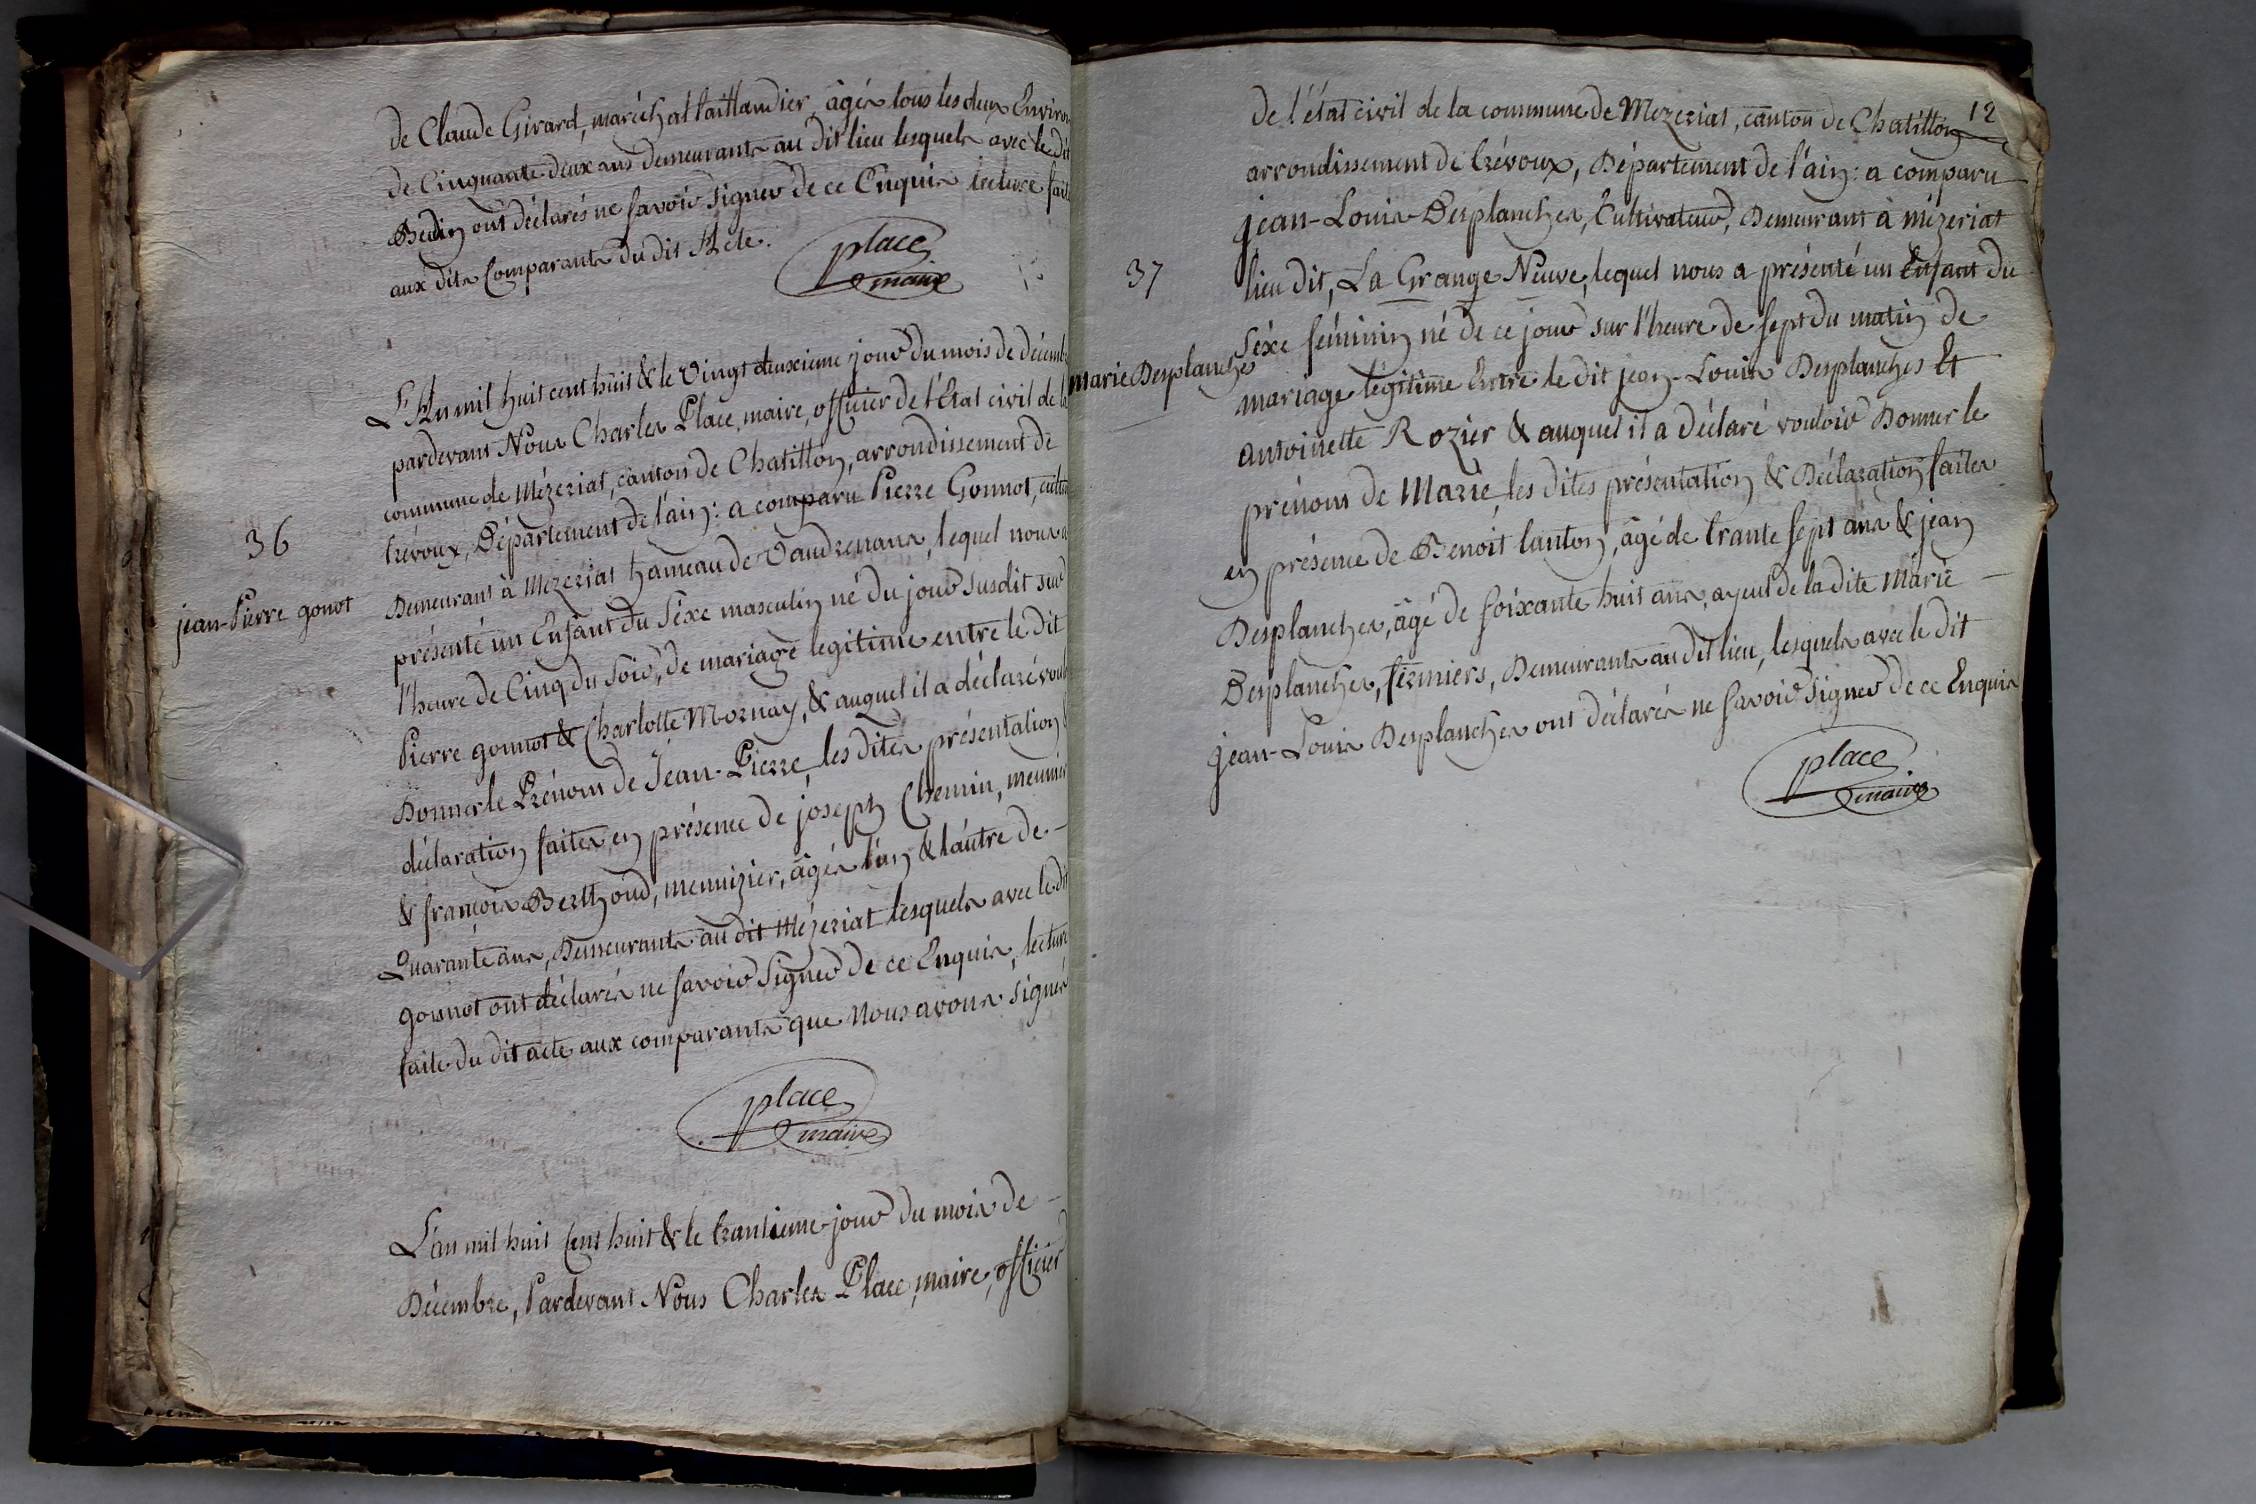 de Claude Girard, maréchal taillandier, âgés tous les deux Environ
de Cinquante deux ans demeurants au dit lieu lesquels avec le dit
Bedin ont déclarés ne savoir signer de ce Enquis lecture fait
aux dits Comparants du dit Acte.
place
maire
36
jean-Pierre gonot
L'An mil huit cent huit & le vingt deuxieme jour du mois de décemb
pardevant Nous Charles Place, maire, officier de l'Etat civil de la
commune de Mézeriat, canton de Chatillon, arrondissement de
trévoux, Département de l'ain: a comparu Pierre Gonnot, cultiv
Demeurant à Mézeriat hameau de Vaudrenans, lequel nous a
présenté un Enfant du Séxe masculin né du jour susdit sur
l'heure de Cinq du Soir, de mariage legitime entre le dit
Pierre gonnot & Charlotte Mornay, & auquel il a déclaré voul
Donner le Prénom de Jean-Pierre, les dites présentation &
déclaration faites en présence de joseph Chemin, meunier
& françois Berthoud, menuizier, âgés l'un & l'autre de
Quarante ans, Demeurants au dit Mézeriat lesquels avec le dit
gonnot ont déclarés ne savoir Signer de ce Enquis, lecture
faite du dit acte aux comparants que Nous avons signé
place
maire
L'an mil huit Cent huit & le trantieme jour du mois de
Décembre, Pardevant Nous Charles Place, maire, officier
12
de l'état civil de la commune de Mezeriat, canton de Chatillon
arrondissement de trévoux, Département de l'ain: a comparu
jean-Louis Desplanches, Cultivateur, Demeurant à mézeriat
37
lieu dit, La Grange Neuve, lequel nous a présenté un Enfant du
Séxe féminin né de ce jour sur l'heure de sept du matin de
marie Desplanches
mariage légitime Entre le dit jean-Louis Desplanches Et
antoinette Rozier & auquel il a déclaré vouloir Donner le
prénom de Marie, les dites présentation & Déclaration faites
en présence de Benoit lanton, âgé de trante sept ans & jean
Desplanches, âgé de soixante huit ans, ayeul de la dite Marie
Desplanches, fermiers, Demeurants au dit lieu, lesquels avec le dit
jean-Louis Desplanches ont déclarés ne savoir signer de ce Enquis
place
maire